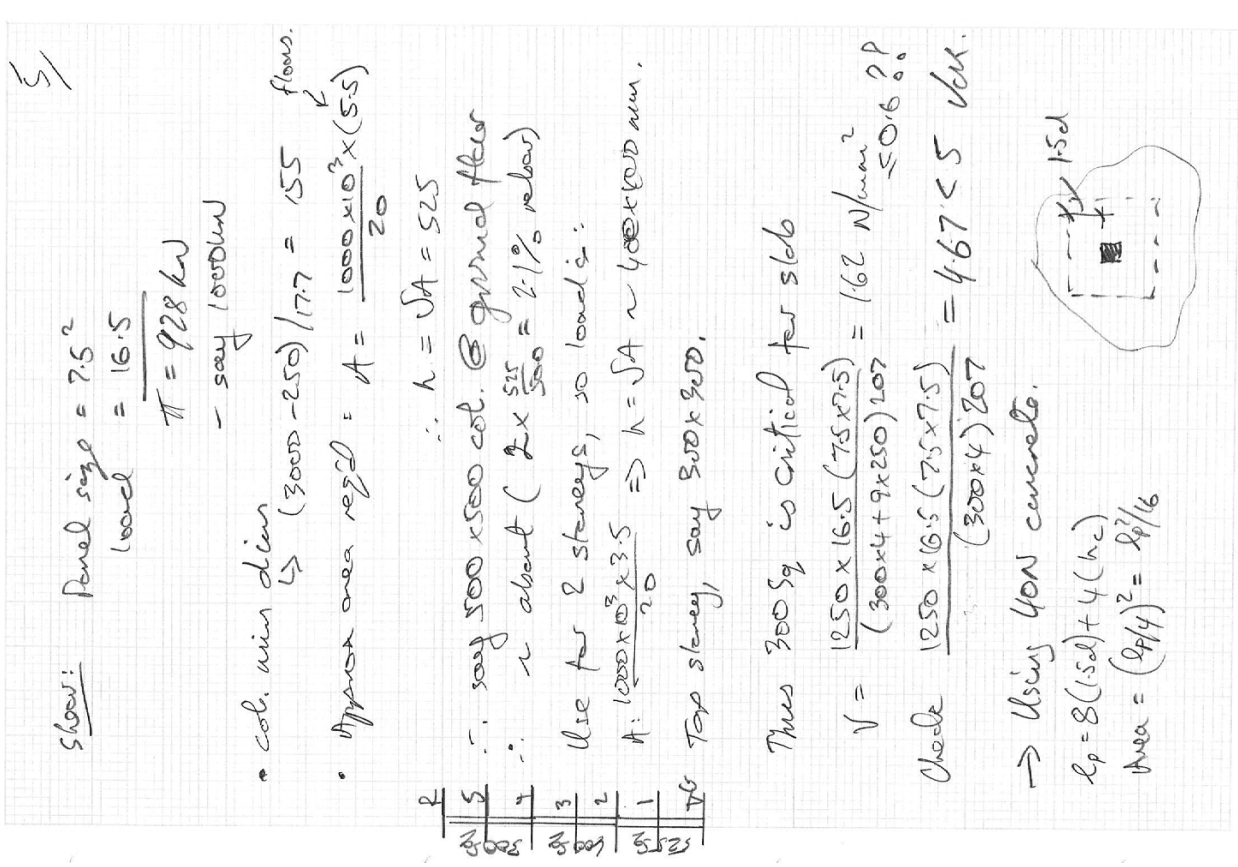 5/
Shear: Panel size = 7.5²
load = 16.5
π = 928 kN
- say 1000kN
• col. min dims
↳ (3000-250)/17.7 = 155
floors.
• Approx area reqd: A = 1000x10³ x (5.5)
20
∴ h = √A = 525
∴ say 500x500 col. @ ground floor
∴ ~ about (2 x 525/500 = 2.1% rebar)
Use for 2 storeys, so load is:
A: 1000x10³x3.5 ⇒ h = √A ~ 400x400 mm.
20
Top storey, say 300x300.
R
5
4
3
2
1
G
300
400
525
Thus 300 Sq is critical for slab
V = 1250 x 16.5 (7.5x7.5) = 1.62 N/mm²
(300x4+9x250)207 ≤0.6??
Check 1250 x 16.5 (7.5x7.5) = 4.67 < 5 √ok.
(300x4)207
→ Using 40N concrete.
lp = 8(1.5d)+4(hc)
Area = (lp/4)² = lp²/16
1.5d